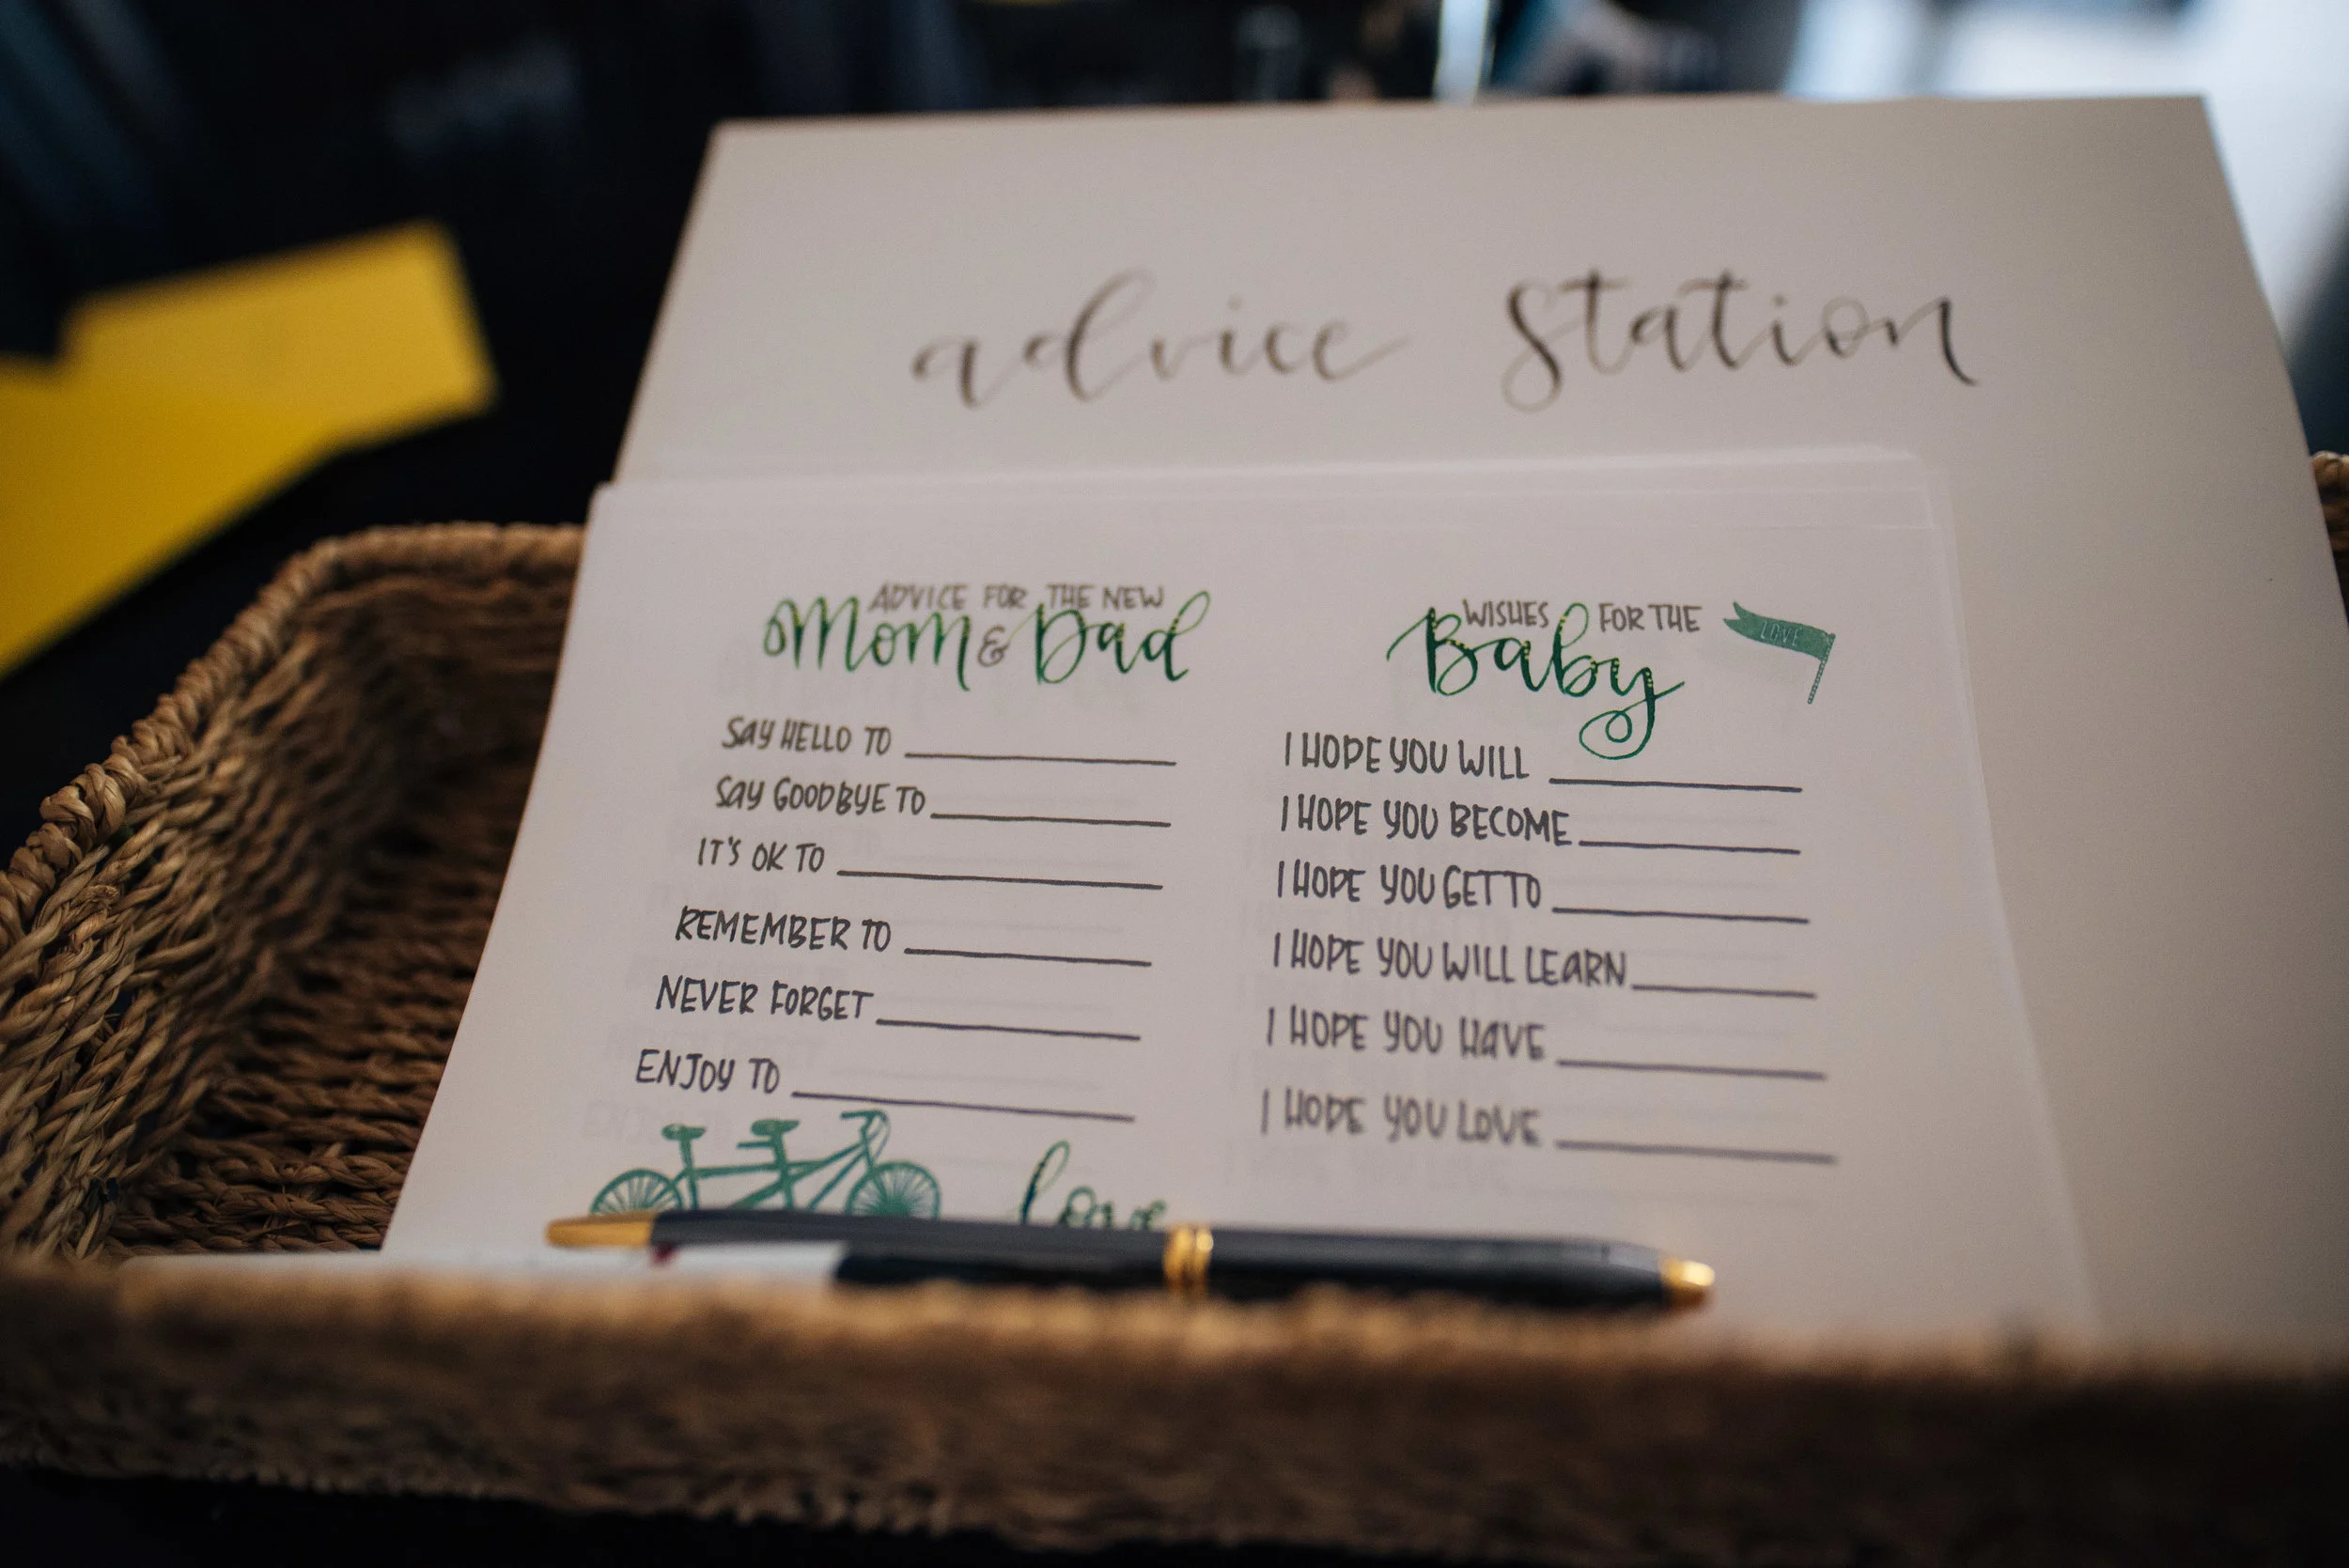 advice station
ADVICE FOR THE NEW
Mom & Dad
SAY HELLO TO
SAY GOODBYE TO
IT'S OK TO
REMEMBER TO
NEVER FORGET
ENJOY TO
love
WISHES FOR THE
Baby
LOVE
I HOPE YOU WILL
I HOPE YOU BECOME
I HOPE YOU GET TO
I HOPE YOU WILL LEARN
I HOPE YOU HAVE
I HOPE YOU LOVE